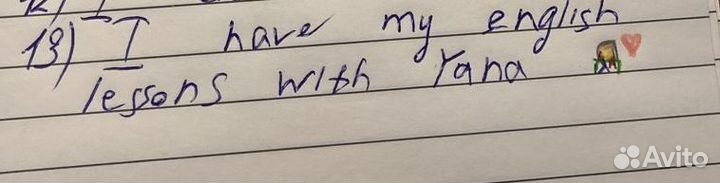 13) I have my english
lessons with Yana
Avito